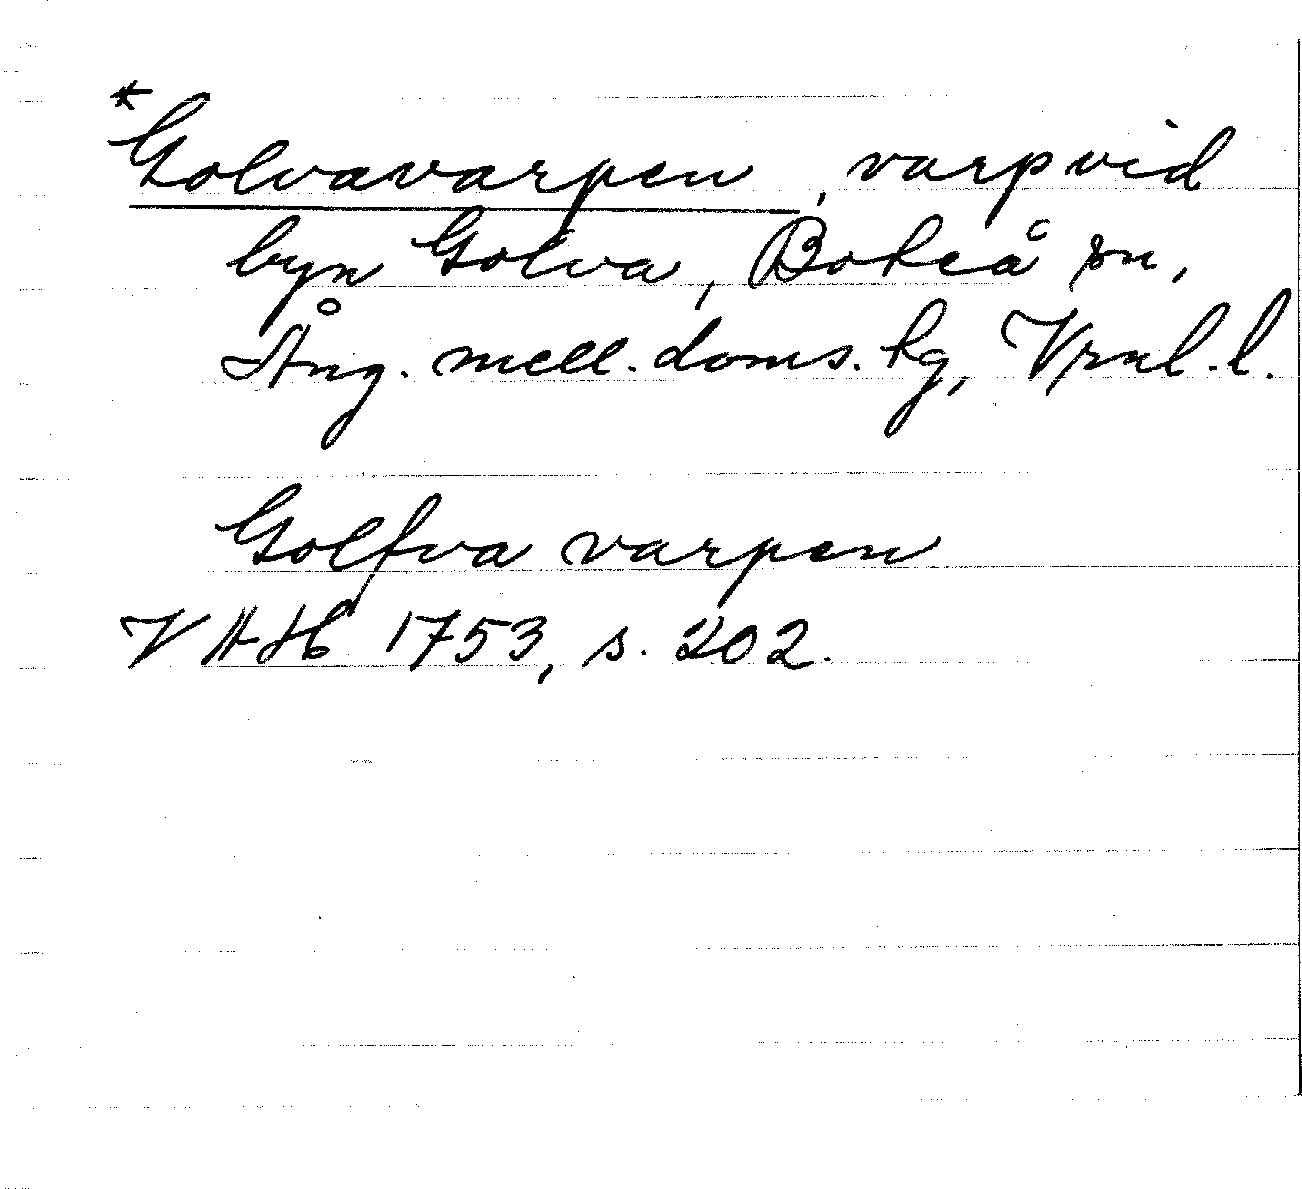 *Golvavarpen, varp vid
byn Golva, Boteå sn,
Ång. mell. doms. hg, Vrnl. l.
Golfva varpen
VAH 1753, s. 202.